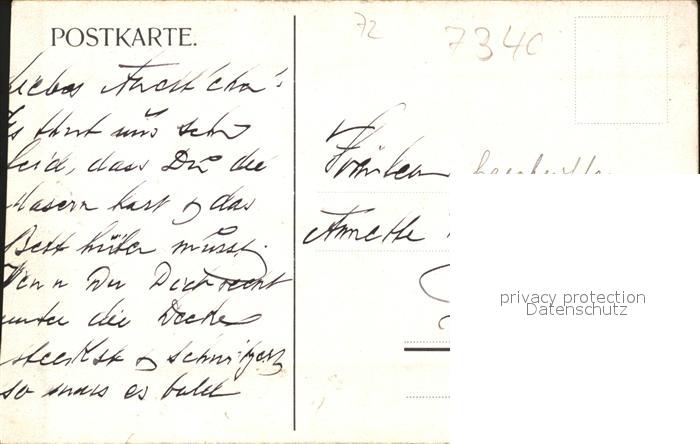 POSTKARTE.
72
7340
Liebes Annettchen!
Es thut uns sehr
leid, dass Du die
Masern hast & das
Bett hüten musst.
Wenn Du Dich recht
unter die Decke
steckst & schwitzest
so muss es bald
Fräulein
Annette
privacy protection
Datenschutz